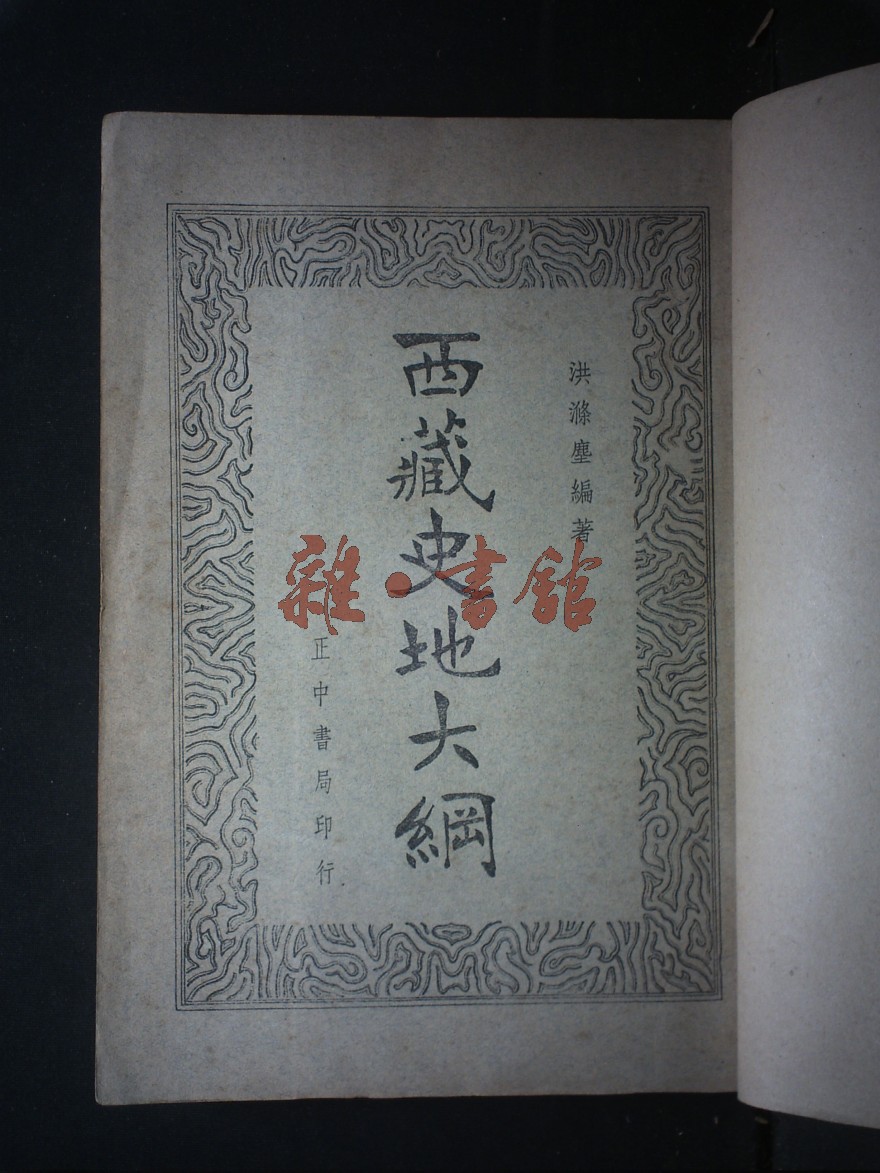 洪滌塵編著
西藏史地大綱
正中書局印行
雜·書館